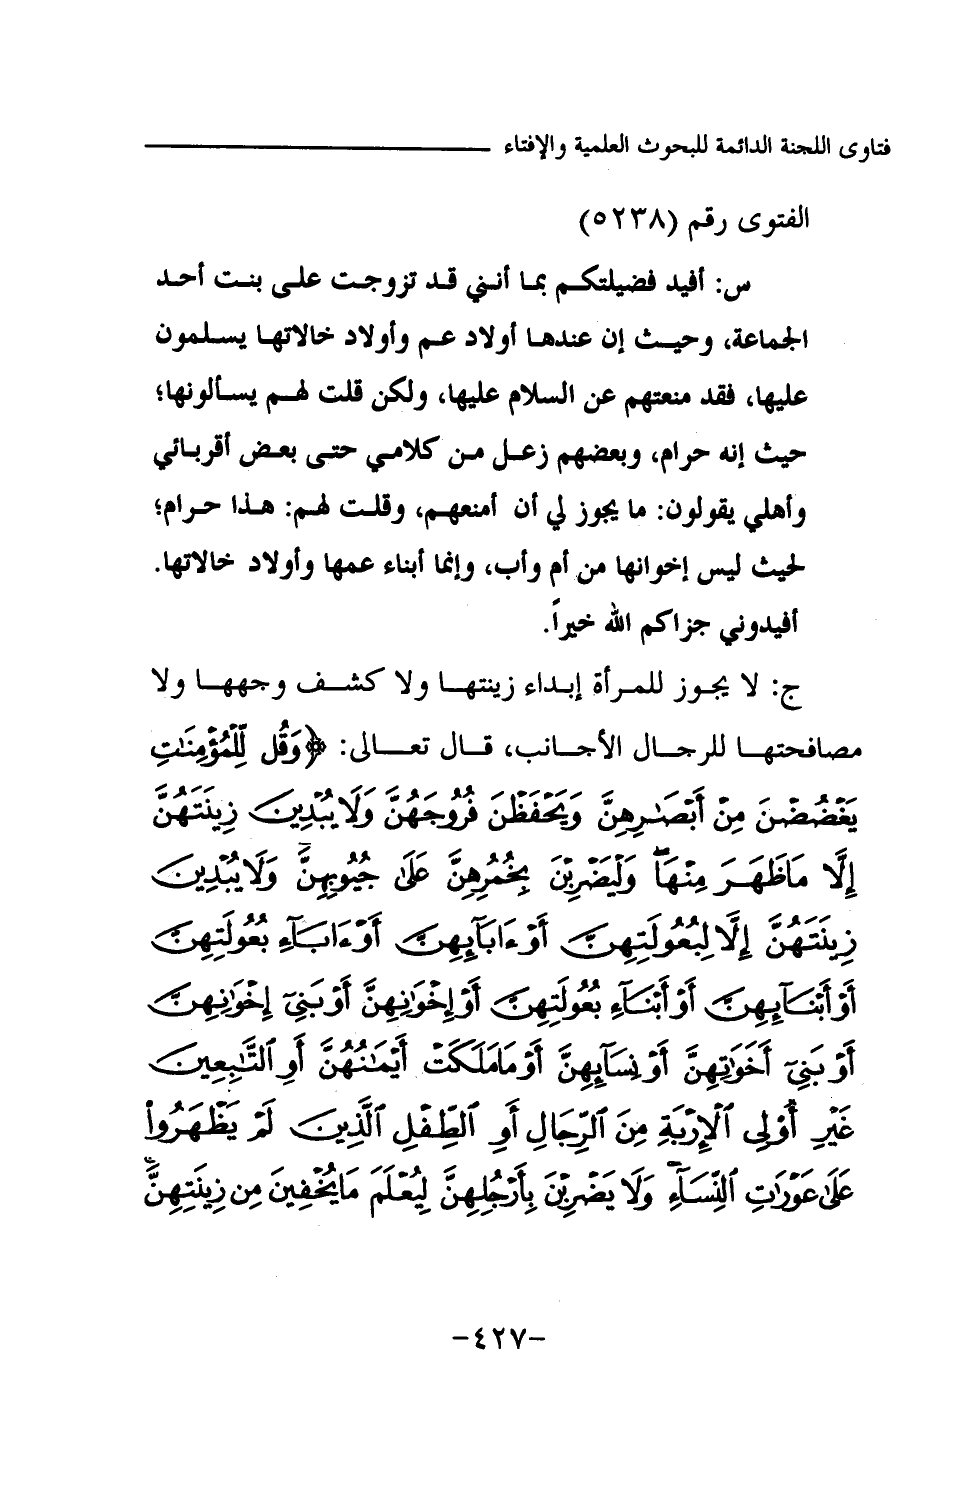 فتاوى اللجنة الدائمة للبحوث العلمية والإفتاء
الفتوى رقم (٥٢٣٨)
س: أفيد فضيلتكم بما أنني قد تزوجت على بنت أحد
الجماعة، وحيث إن عندها أولاد عم وأولاد خالاتها يسلمون
عليها، فقد منعتهم عن السلام عليها، ولكن قلت لهم يسألونها؛
حيث إنه حرام، وبعضهم زعل من كلامي حتى بعض أقربائي
وأهلي يقولون: ما يجوز لي أن أمنعهم، وقلت لهم: هذا حرام؛
لحيث ليس إخوانها من أم وأب، وإنما أبناء عمها وأولاد خالاتها.
أفيدوني جزاكم الله خيراً.
ج: لا يجوز للمرأة إبداء زينتها ولا كشف وجهها ولا
مصافحتها للرجال الأجانب، قال تعالى: ﴿وَقُل لِّلْمُؤْمِنَٰتِ
يَغْضُضْنَ مِنْ أَبْصَٰرِهِنَّ وَيَحْفَظْنَ فُرُوجَهُنَّ وَلَا يُبْدِينَ زِينَتَهُنَّ
إِلَّا مَا ظَهَرَ مِنْهَاۖ وَلْيَضْرِبْنَ بِخُمُرِهِنَّ عَلَىٰ جُيُوبِهِنَّۖ وَلَا يُبْدِينَ
زِينَتَهُنَّ إِلَّا لِبُعُولَتِهِنَّ أَوْ ءَابَآئِهِنَّ أَوْ ءَابَآءِ بُعُولَتِهِنَّ
أَوْ أَبْنَآئِهِنَّ أَوْ أَبْنَآءِ بُعُولَتِهِنَّ أَوْ إِخْوَٰنِهِنَّ أَوْ بَنِىٓ إِخْوَٰنِهِنَّ
أَوْ بَنِىٓ أَخَوَٰتِهِنَّ أَوْ نِسَآئِهِنَّ أَوْ مَا مَلَكَتْ أَيْمَٰنُهُنَّ أَوِ ٱلتَّٰبِعِينَ
غَيْرِ أُو۟لِى ٱلْإِرْبَةِ مِنَ ٱلرِّجَالِ أَوِ ٱلطِّفْلِ ٱلَّذِينَ لَمْ يَظْهَرُوا۟
عَلَىٰ عَوْرَٰتِ ٱلنِّسَآءِۖ وَلَا يَضْرِبْنَ بِأَرْجُلِهِنَّ لِيُعْلَمَ مَا يُخْفِينَ مِن زِينَتِهِنَّۚ
-٤٢٧-